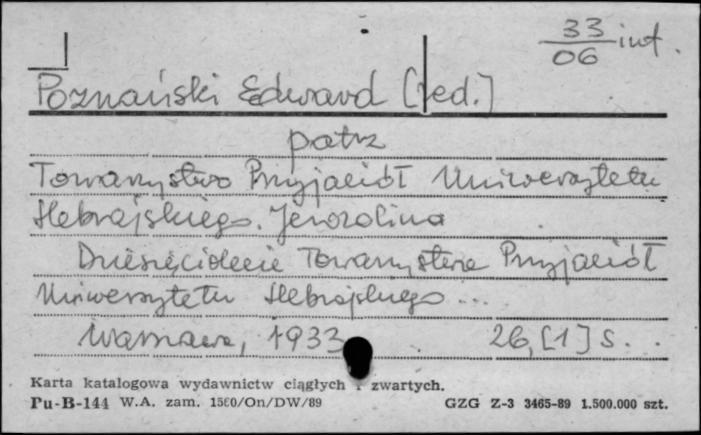 33
06 int.
Poznański Edward [red.]
patrz
Towarzystwo Przyjaciół Uniwersytetu
Hebrajskiego. Jerozolima
Dziesięciolecie Towarzystwa Przyjaciół
Uniwersytetu Hebrajskiego ...
Warszawa, 1933 26, [1] s. .
Karta katalogowa wydawnictw ciągłych i zwartych.
Pu-B-144 W.A. zam. 1560/On/DW/89 GZG Z-3 3465-89 1.500.000 szt.